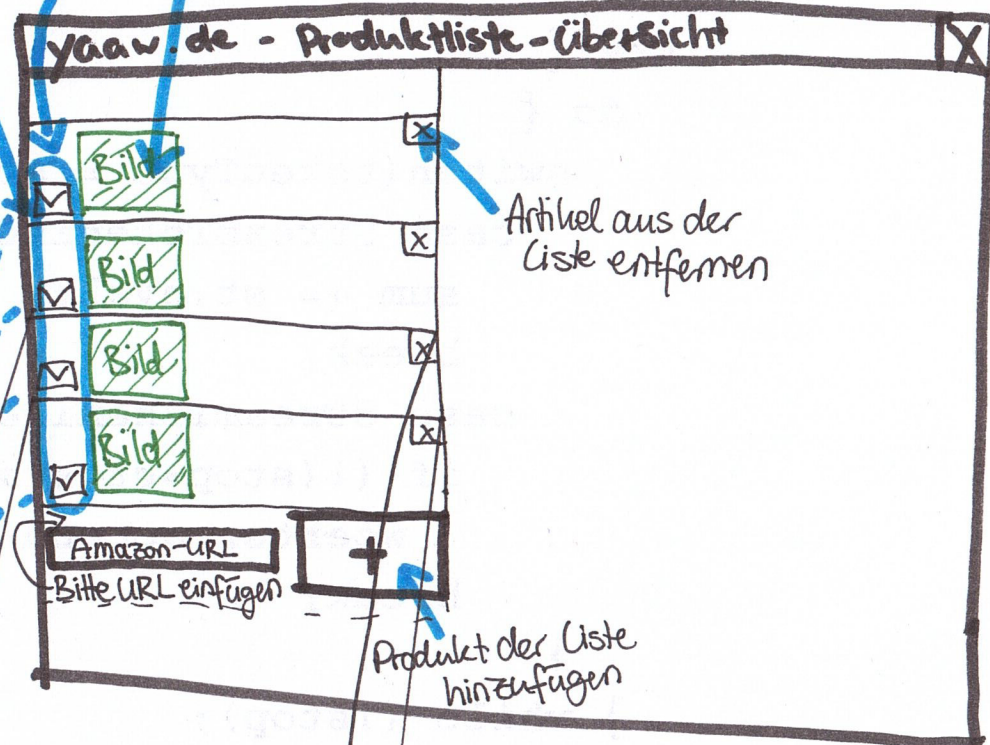 yaaw.de - Produktliste-Übersicht X
Bild X
Artikel aus der
Liste entfernen
Bild X
Bild X
Bild X
Amazon-URL +
Bitte URL einfügen
Produkt der Liste
hinzufügen